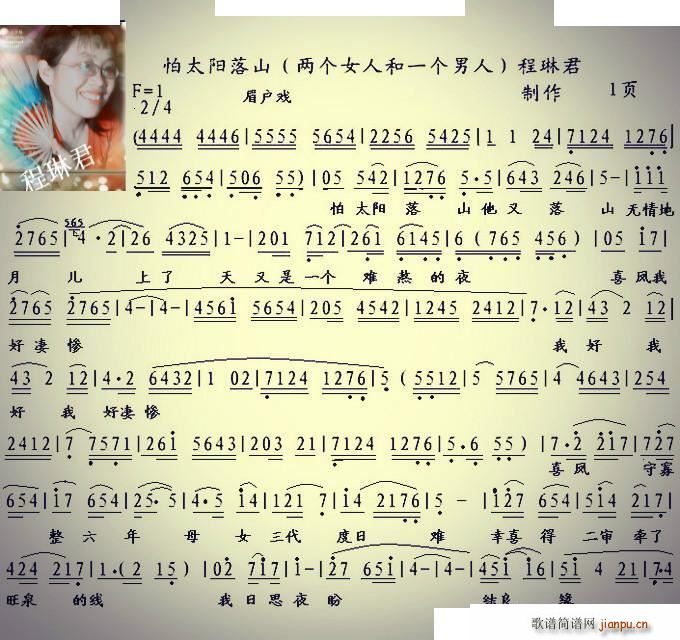 怕太阳落山（两个女人和一个男人）程琳君
F=1
2/4
眉户戏
制作
1页
程琳君
(4444 4446|5555 5654|2256 5425|1 1 24|7124 1276|
512 654|506 55)|05 542|1276 5·5|643 246|5-|111
怕太阳落山他又落山无情地
2765|4·2|26 4325|1-|201 712|261 6145|6(765 456)|05 17|
月儿上了天又是一个难熬的夜喜凤我
2765 2765|4-|4-|4561 5654|205 4542|1245 2412|7·12|43 2 12|
好凄惨我好我
43 2 12|4·2 6432|1 02|7124 1276|5(5512|5 5765|4 4643|254
好我好凄惨
2412|7 7571|261 5643|203 21|7124 1276|5·6 55)|7·2 217|727
喜凤守寡
654|17 654|25·5|4·5 14|121 7|14 2176|5-|127 654|514 217|
整六年母女三代度日难幸喜得二审率了
424 217|1·(2 15)|02 717|1-|27 651|4-|4-|451 16|51 421|7·4
旺泉的线我日思夜盼结良缘
歌谱简谱网
jianpu.cn